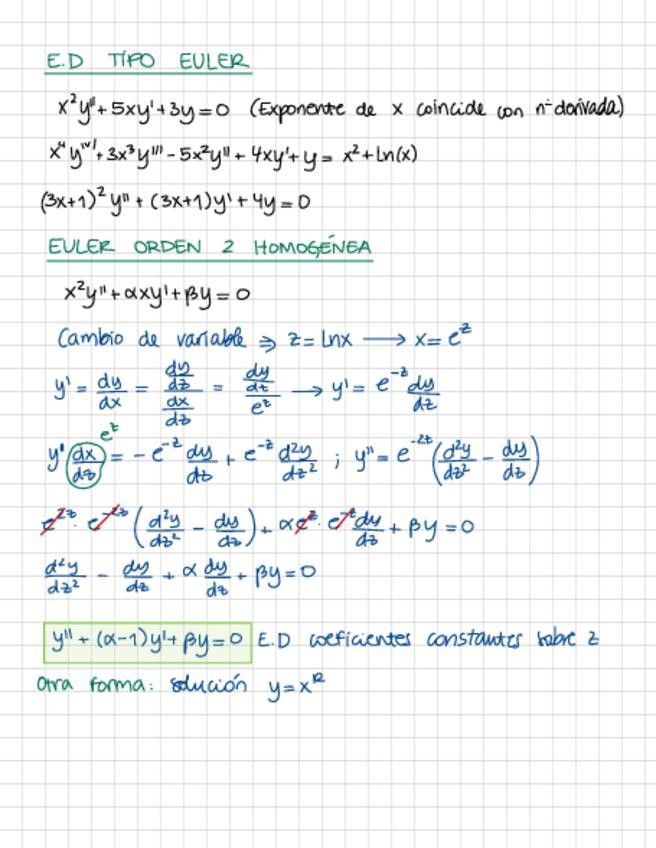 E.D TIPO EULER
x²y'' + 5xy' + 3y = 0 (Exponente de x coincide con nº derivada)
x⁴y^IV + 3x³y''' - 5x²y'' + 4xy' + y = x² + Ln(x)
(3x+1)²y'' + (3x+1)y' + 4y = 0
EULER ORDEN 2 HOMOGÉNEA
x²y'' + αxy' + βy = 0
Cambio de variable ⇒ z = Lnx ⟶ x = e^z
y' = dy/dx = (dy/dz)/(dx/dz) = (dy/dz)/e^z ⟶ y' = e^-z dy/dz
e^z
y' (dx/dz) = - e^-z dy/dz + e^-z d²y/dz² ; y'' = e^-2z (d²y/dz² - dy/dz)
e^2z · e^-2z (d²y/dz² - dy/dz) + αe^z · e^-z dy/dz + βy = 0
d²y/dz² - dy/dz + α dy/dz + βy = 0
y'' + (α-1)y' + βy = 0 E.D coeficientes constantes sobre z
Otra forma: solución y = x^R